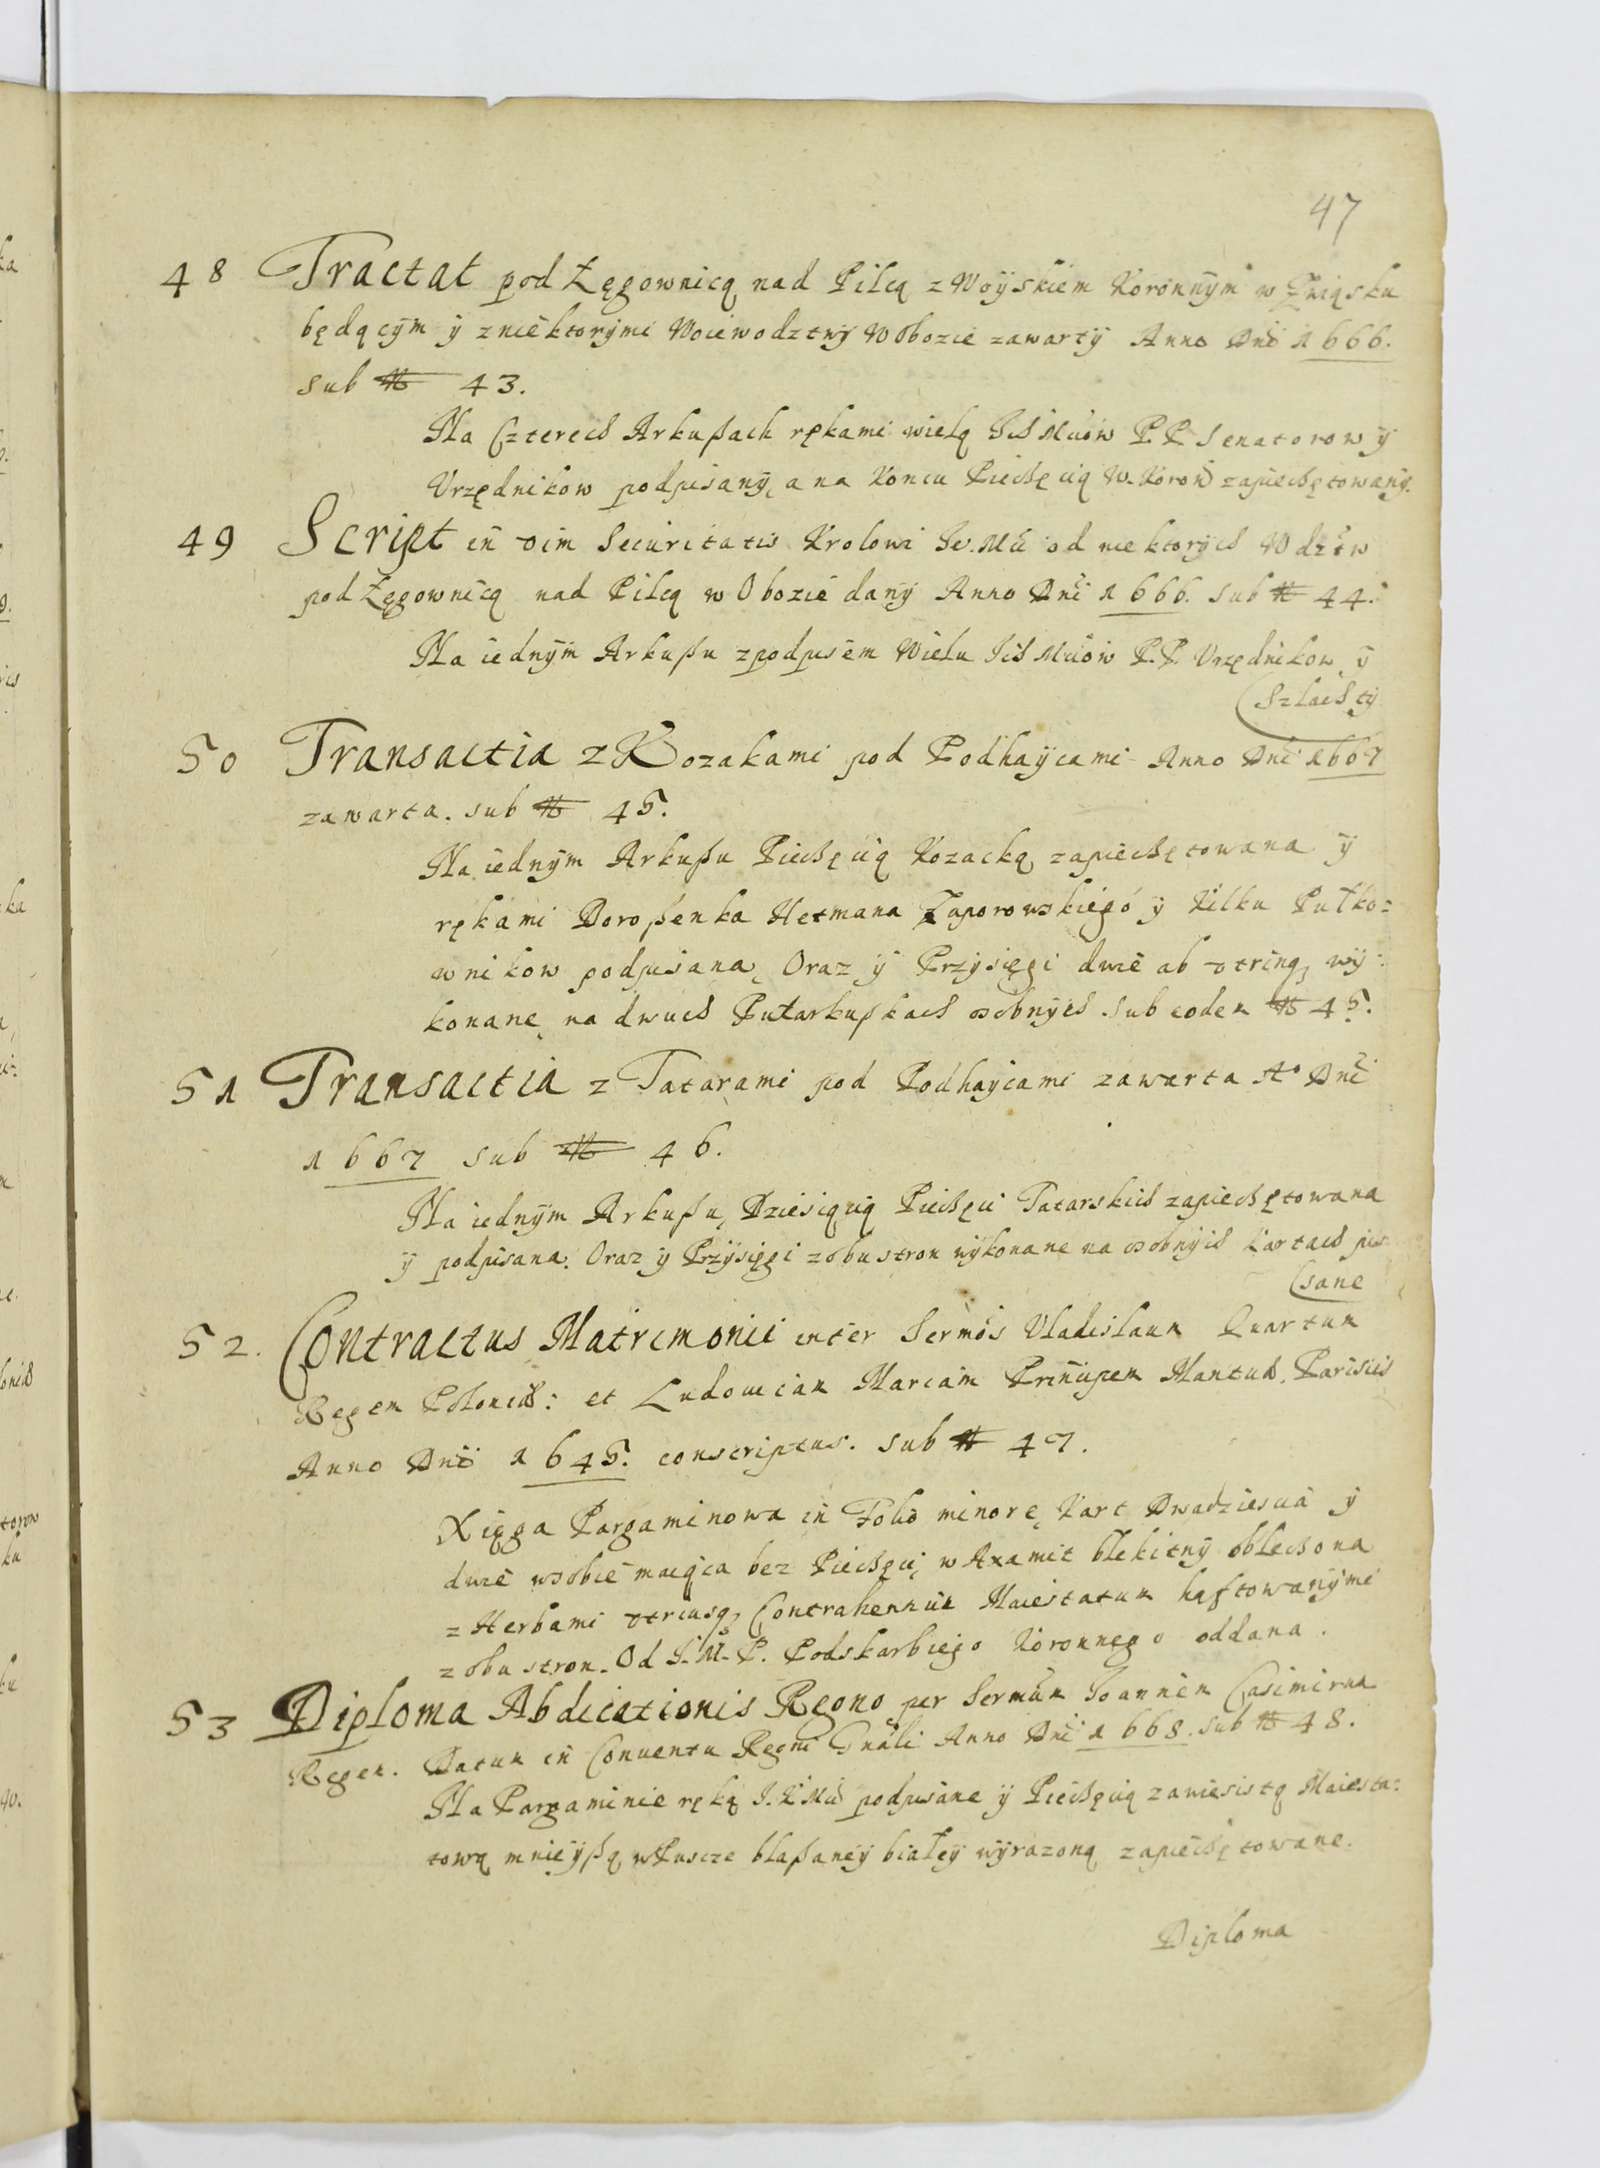 47
48 Tractat pod Łęgownicą nad Pilcą z Woyskiem Koronnym w Zwiąsku
będącym y z niektorymi Woiewodztwy w Obozie zawarty Anno Dni 1666.
sub N 43.
Na Czterech Arkußach rękami wielą Ich Mciow P.P. Senatorow y
Vrzędnikow podpisany, a na Koncu Piechęcią W. Koron zapiechętowany.
49 Script in vim Securitatis Krolowi Je. Mci od niektorych Wdztw
pod Łęgownicą nad Pilcą w Obozie dany Anno Dni 1666. sub N 44.
Na iednym Arkußu z podpisem Wielu Ich Mciow P.P. Vrzędnikow y
Szlachty
50 Transactia z Kozakami pod Podhaycami Anno Dni 1667
zawarta. sub N 45.
Na iednym Arkußu Piechęcią Kozacką zapiechętowana y
rękami Doroßenka Hetmana Zaporowskiego y Kilku Pułko=
wnikow podpisana, Oraz y Przysięgi dwie ab vtrinq, wy-
konane, na dwuch Pułarkußkach osobnych sub eodem N 45.
51 Transactia z Tatarami pod Podhaycami zawarta Ao Dni
1667 sub N 46.
Na iednym Arkußu, Dziesiącią Piechęci Tatarskich zapiechętowana
y podpisana. Oraz y Przysięgi z obu stron wykonane na osobnych Kartach pi-
sane
52. Contractus Matrimonii inter Sermos Vladislaum Quartum
Regem Poloniæ: et Ludouicam Mariam Principem Mantuæ, Parisiis
Anno Dni 1645. conscriptus. sub N 47.
Xięga Pargaminowa in Folio minore, Kart Dwadziescia y
dwie w sobie maiąca bez Piechęci, w Axamit błekitny obłechona
z Herbami vtriusq, Contrahentium Maiestatum haftowanymi
z obu stron. Od J. M. P. Podskarbiego Koronnego oddana.
53 Diploma Abdicationis Regno per Sermum Joannem Casimirum
Regem. Datum in Conuentu Regni Gnali Anno Dni 1668. sub N 48.
Na Pargaminie ręką J. K Mci podpisane y Piechęcią zawiesistą Maiesta=
tową mnieyßą w Pusce blaßaney białey wyrazoną zapiechętowane.
Diploma